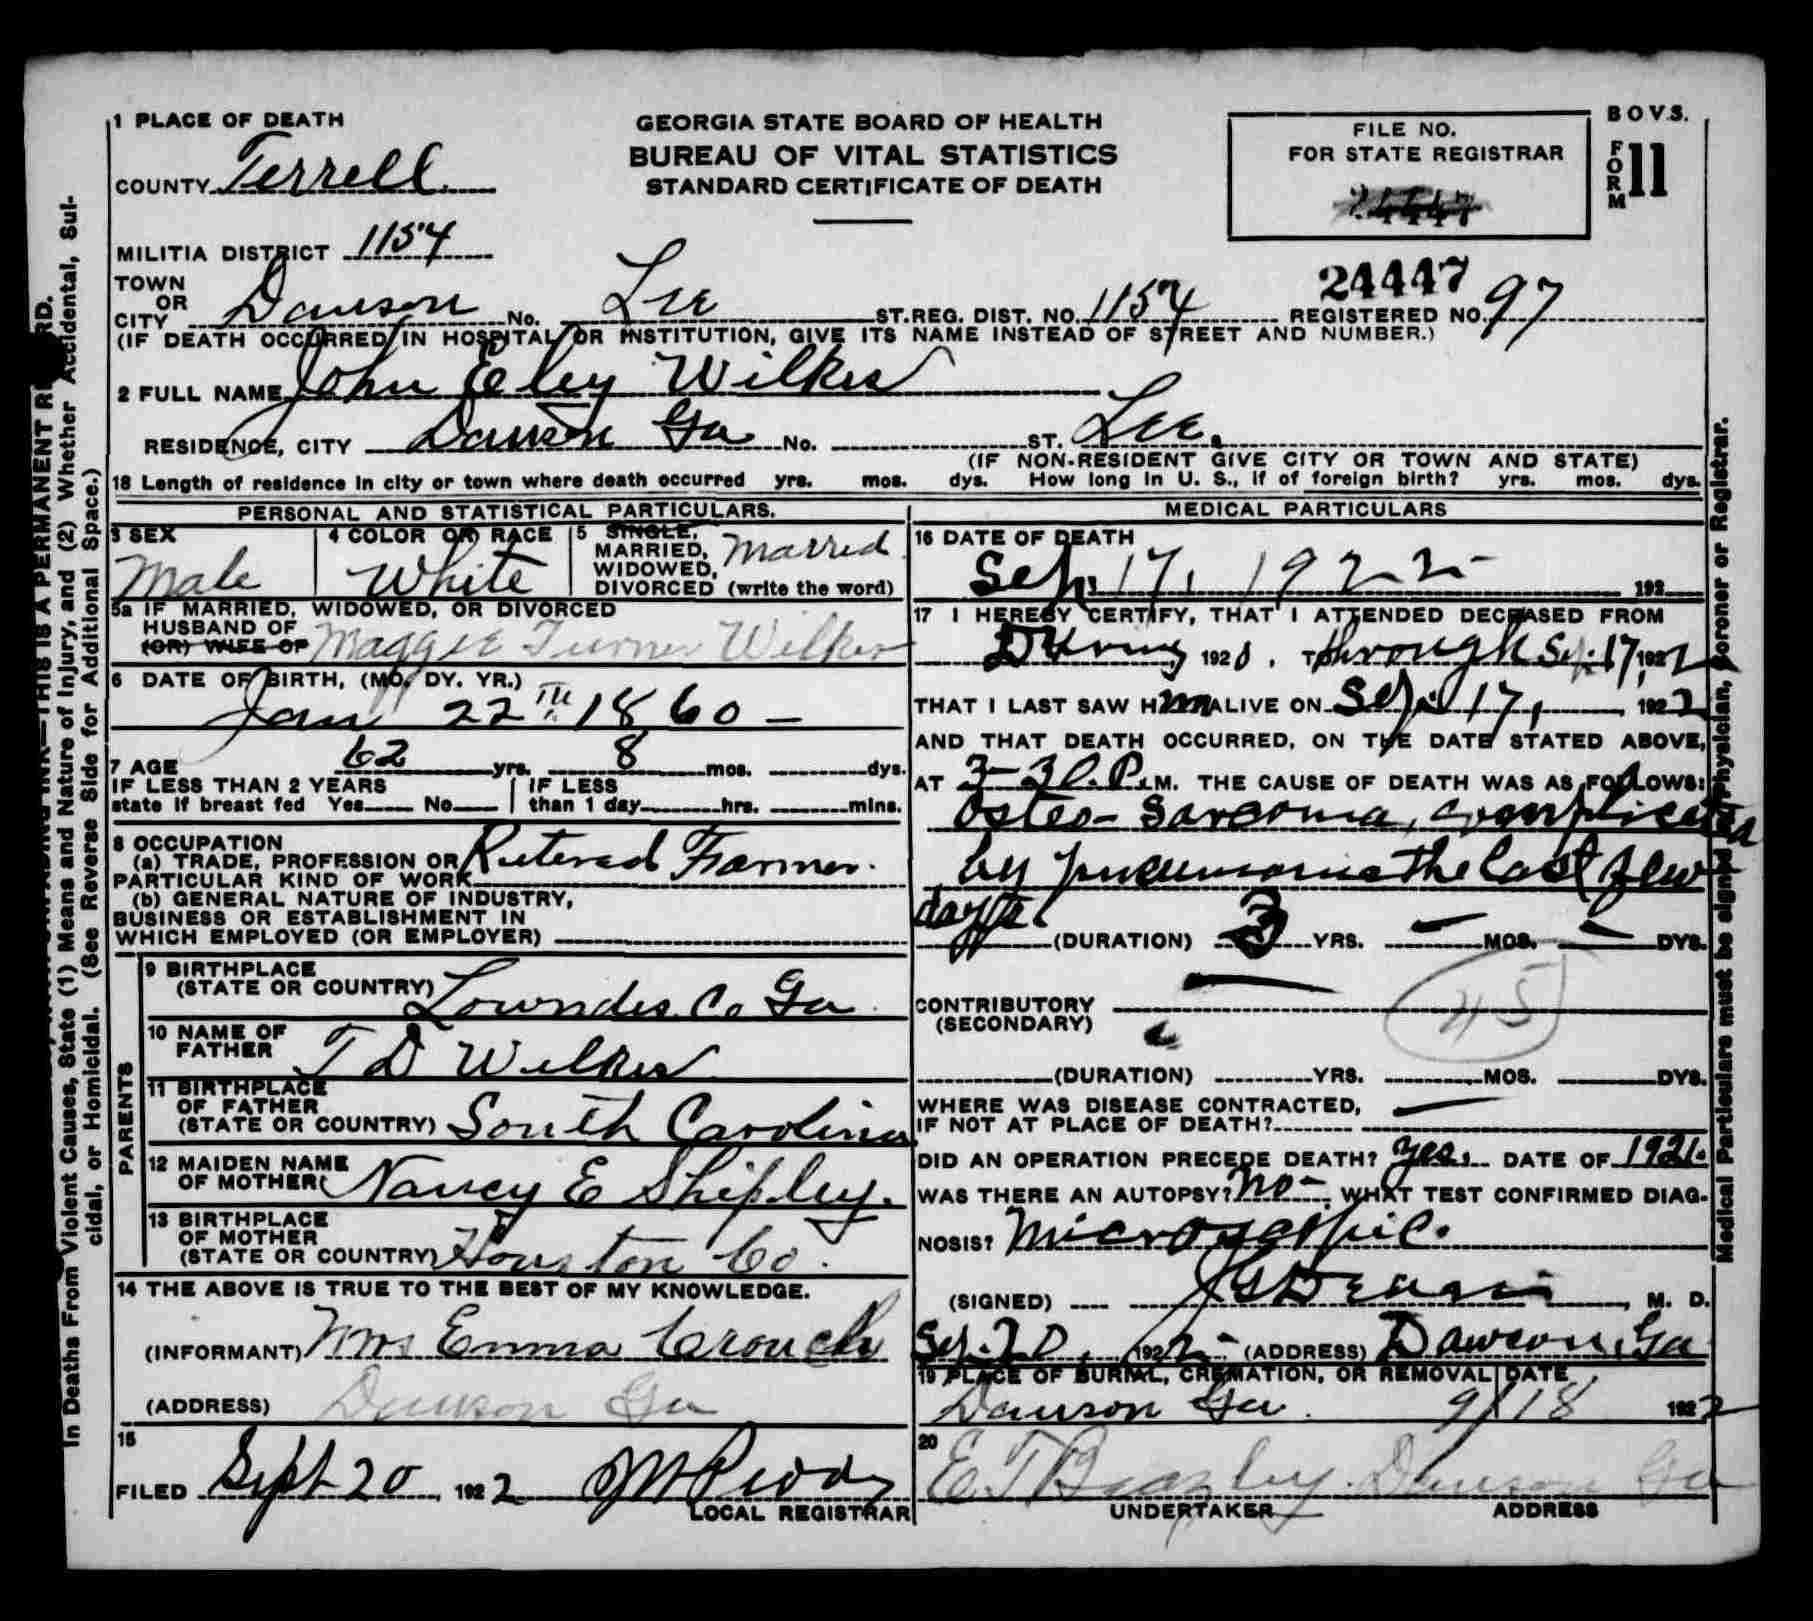 1 PLACE OF DEATH
COUNTY Terrell
MILITIA DISTRICT 1154
GEORGIA STATE BOARD OF HEALTH
BUREAU OF VITAL STATISTICS
STANDARD CERTIFICATE OF DEATH
FILE NO.
FOR STATE REGISTRAR
24447
B O V.S.
FORM 11
24447
TOWN OR CITY Dawson No. Lee ST. REG. DIST. NO. 1154 REGISTERED NO. 97
(IF DEATH OCCURRED IN HOSPITAL OR INSTITUTION, GIVE ITS NAME INSTEAD OF STREET AND NUMBER.)
2 FULL NAME John Eley Wilkes
RESIDENCE, CITY Dawson Ga No. ST. Lee.
(IF NON-RESIDENT GIVE CITY OR TOWN AND STATE)
18 Length of residence in city or town where death occurred yrs. mos. dys. How long in U. S., if of foreign birth? yrs. mos. dys.
PERSONAL AND STATISTICAL PARTICULARS.
3 SEX
Male
4 COLOR OR RACE
White
5 SINGLE,
MARRIED,
WIDOWED,
DIVORCED (write the word)
Marred
5a IF MARRIED, WIDOWED, OR DIVORCED
HUSBAND OF
(OR) WIFE OF Maggie Turner Wilkes
6 DATE OF BIRTH, (MO. DY. YR.)
Jan 22 TH 1860 -
7 AGE 62 yrs. 8 mos. dys.
IF LESS THAN 2 YEARS
state if breast fed Yes No
IF LESS
than 1 day hrs. mins.
8 OCCUPATION
(a) TRADE, PROFESSION OR
PARTICULAR KIND OF WORK Reterad Farmer.
(b) GENERAL NATURE OF INDUSTRY,
BUSINESS OR ESTABLISHMENT IN
WHICH EMPLOYED (OR EMPLOYER)
PARENTS
9 BIRTHPLACE
(STATE OR COUNTRY) Lowndes Co Ga
10 NAME OF
FATHER T D Wilkes
11 BIRTHPLACE
OF FATHER
(STATE OR COUNTRY) South Carolina
12 MAIDEN NAME
OF MOTHER Nancy E Shipley.
13 BIRTHPLACE
OF MOTHER
(STATE OR COUNTRY) Houston Co.
14 THE ABOVE IS TRUE TO THE BEST OF MY KNOWLEDGE.
(INFORMANT) Mrs Emma Crouch
(ADDRESS) Dawson Ga
15
FILED Sept 20, 1922
LOCAL REGISTRAR
MEDICAL PARTICULARS
16 DATE OF DEATH
Sep. 17, 1922 - 192
17 I HEREBY CERTIFY, THAT I ATTENDED DECEASED FROM
During 192 , To through Sep. 17, 1922
THAT I LAST SAW Him ALIVE ON Sep. 17, 1922
AND THAT DEATH OCCURRED, ON THE DATE STATED ABOVE,
AT 3-30 P.M. THE CAUSE OF DEATH WAS AS FOLLOWS:
Osteo-Sarcoma, complicated
by pneumonia the last few
days.
(DURATION) 3 YRS. - MOS. - DYS.
CONTRIBUTORY -
(SECONDARY)
45
(DURATION) YRS. MOS. DYS.
WHERE WAS DISEASE CONTRACTED,
IF NOT AT PLACE OF DEATH? -
DID AN OPERATION PRECEDE DEATH? Yes. DATE OF 1921.
WAS THERE AN AUTOPSY? No- WHAT TEST CONFIRMED DIAG-
NOSIS? Microscopic.
(SIGNED) , M. D.
Sep. 20, 1922 (ADDRESS) Dawson, Ga
19 PLACE OF BURIAL, CREMATION, OR REMOVAL DATE
Dawson Ga. 9/18 1922
20
Dawson Ga
UNDERTAKER ADDRESS
In Deaths From Violent Causes, State (1) Means and Nature of Injury, and (2) Whether Accidental, Sui-
cidal, or Homicidal. (See Reverse Side for Additional Space.)
UNFADING INK—THIS IS A PERMANENT RECORD.
Medical Particulars must be signed by Physician, Coroner or Registrar.